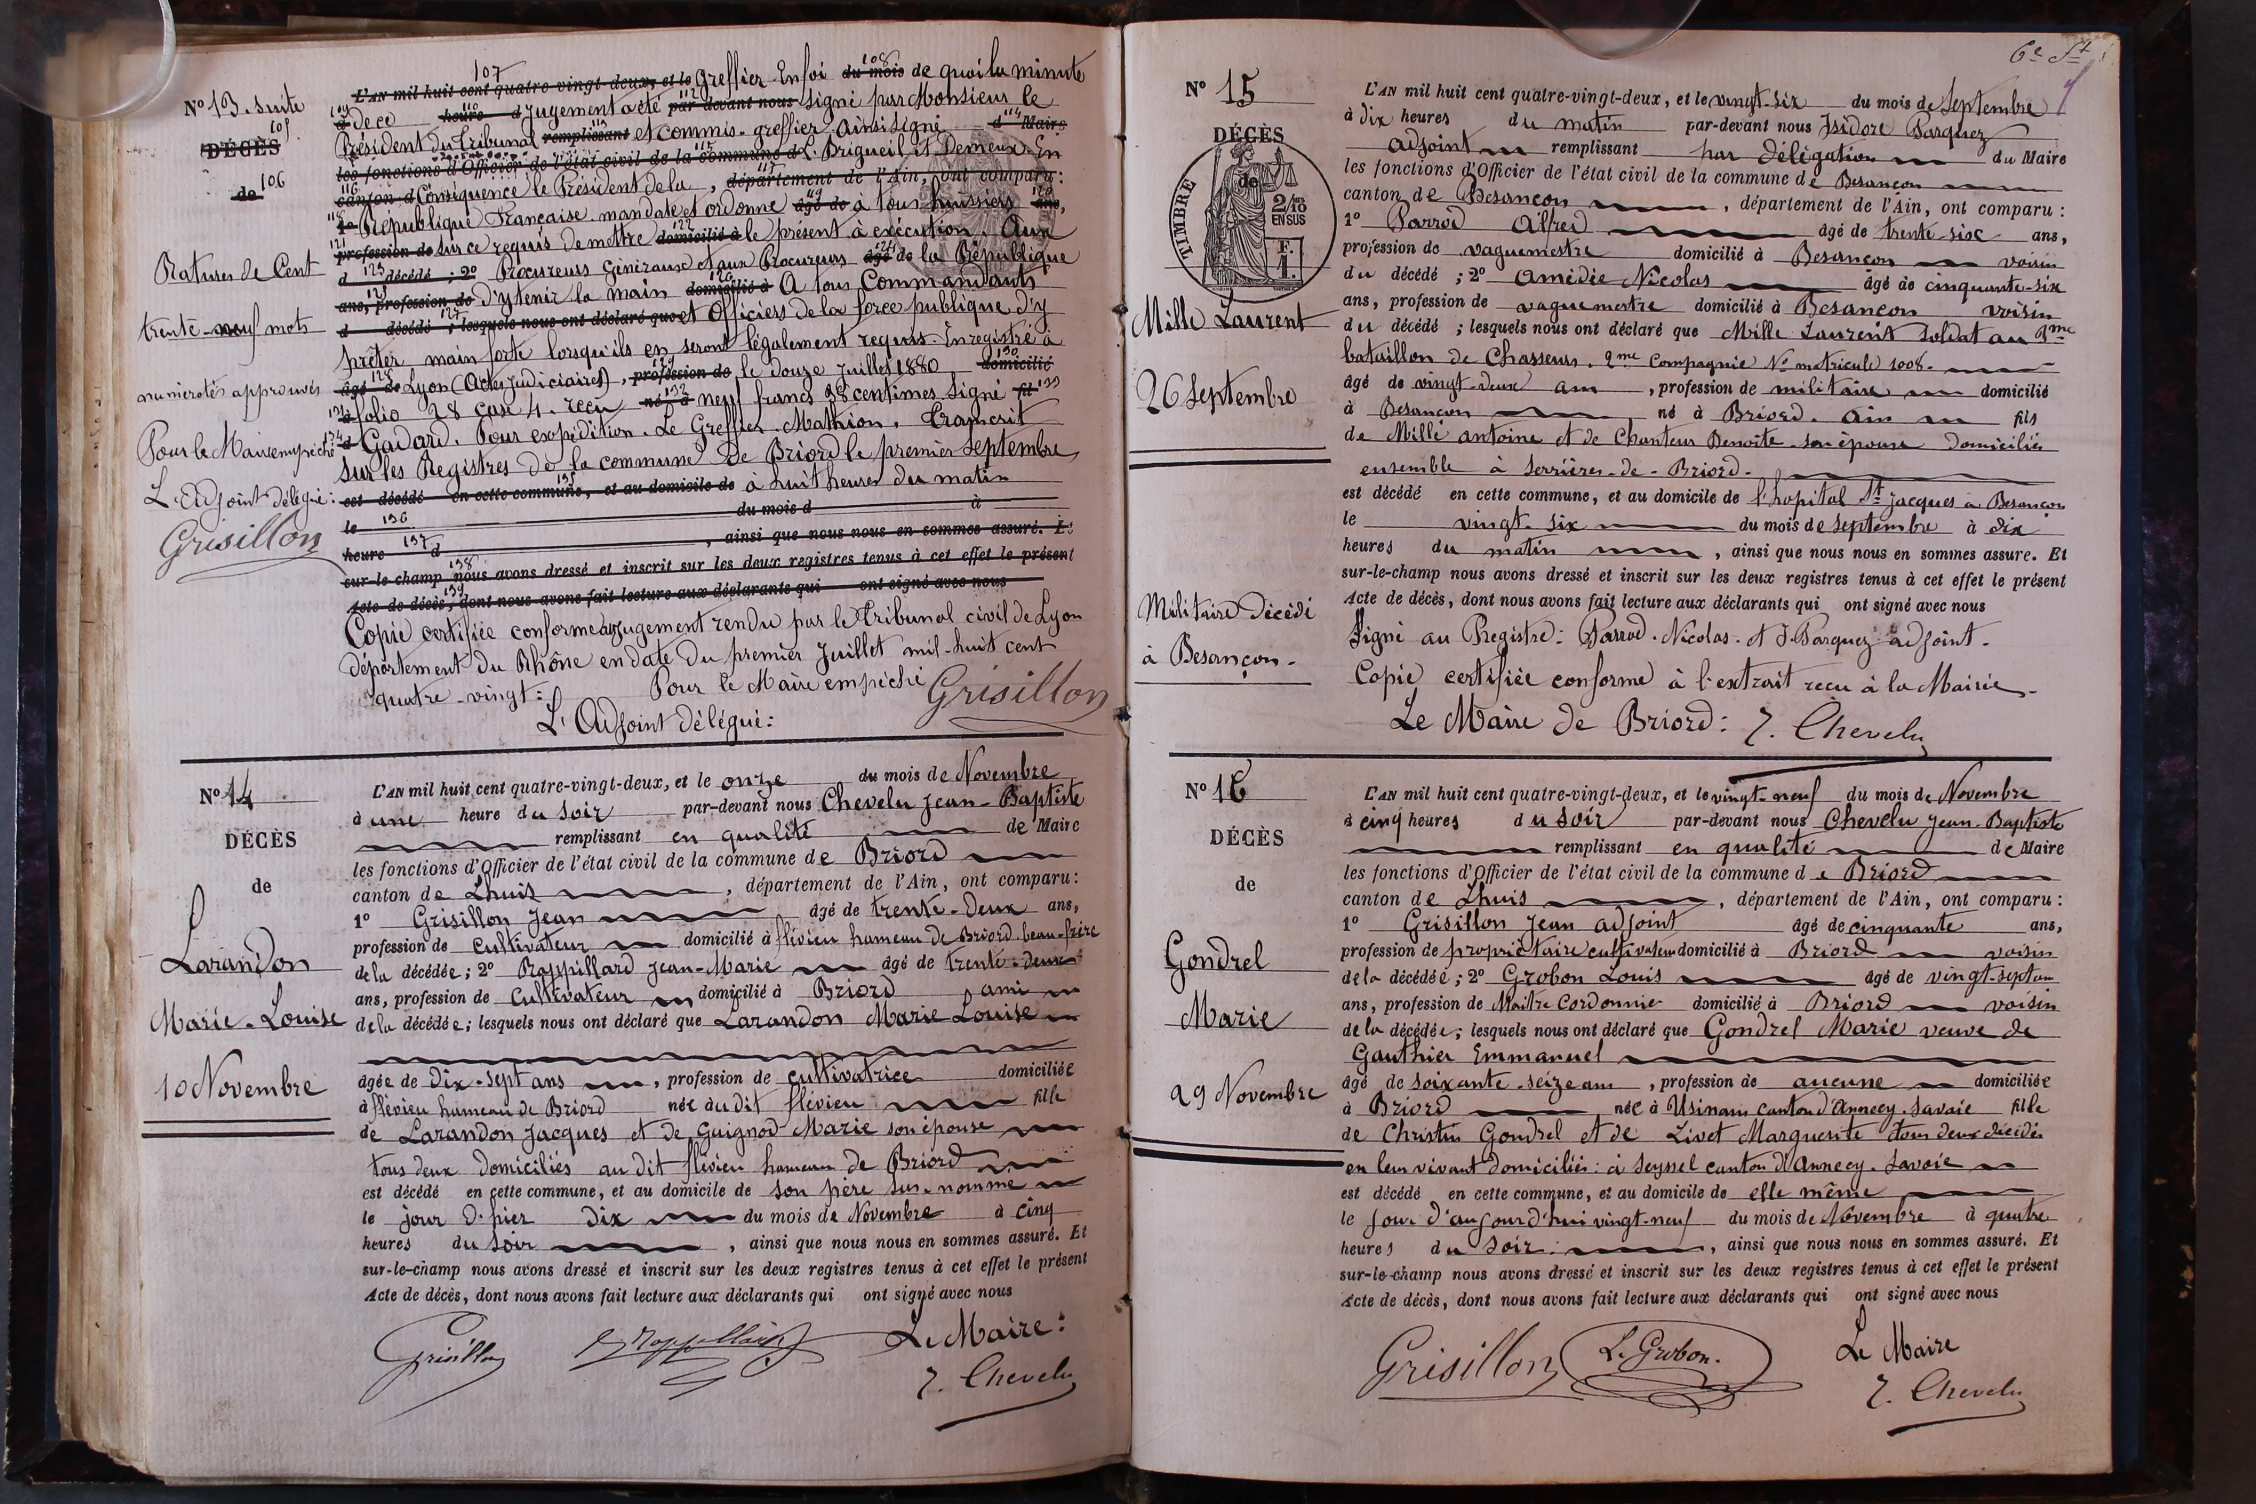 N° 13. suite
105
DÉCÈS
de 106
Ratures de Cent
trente-neuf mots
numérotés approuvés
Pour le Maire empêché
L'Adjoint délégué:
Grisillon
107
L'AN mil huit cent quatre-vingt-deux, et le Greffier. En foi du mois de quoi la minute
de ce heure d Jugement a été par-devant nous signé par Monsieur le
Président du Tribunal remplissant et commis-greffier. Ainsi signé d Maire
les fonctions d'Officier de l'état civil de la commune d L. Brigueil et Demeux. En
canton d Conséquence le Président de la, département de l'Ain, ont comparu:
1° République Française mande et ordonne âgé de à tous huissiers ans,
profession de sur ce requis de mettre domicilié à le présent à exécution. Aux
d décédé; 2° Procureurs Généraux et aux Procureurs âgé de la République
ans, profession de d'y tenir la main domicilié à A tous Commandants
d décédé; lesquels nous ont déclaré que et Officiers de la force publique d'y
prêter main forte lorsqu'ils en seront légalement requis. Enregistré à
âgé de Lyon (Actes Judiciaires), profession de le douze Juillet 1880 domicilié
à folio 28 case 4. reçu né à neuf francs 38 centimes signé fil
d Gadard. Pour expédition. Le Greffier. Mathion. Transcrit
sur les Registres de la commune de Briord le premier septembre
est décédé en cette commune, et au domicile de à huit heures du matin
le 136 du mois d à
heure 137 d , ainsi que nous nous en sommes assuré. Et
sur-le-champ nous avons dressé et inscrit sur les deux registres tenus à cet effet le présent
Acte de décès, dont nous avons fait lecture aux déclarants qui ont signé avec nous
Copie certifiée conforme au jugement rendu par le Tribunal civil de Lyon
département du Rhône en date du premier Juillet mil-huit cent
quatre-vingt: Pour le Maire empêché
L'Adjoint délégué: Grisillon
N° 14
DÉCÈS
de
Larandon
Marie-Louise
10 Novembre
L'AN mil huit cent quatre-vingt-deux, et le onze du mois de Novembre
à une heure du soir par-devant nous Chevelu Jean-Baptiste
remplissant en qualité de Maire
les fonctions d'Officier de l'état civil de la commune de Briord
canton de Lhuis, département de l'Ain, ont comparu:
1° Grisillon Jean âgé de trente-deux ans,
profession de cultivateur domicilié à flévieu hameau de Briord beau-frère
de la décédée; 2° Rappillard Jean-Marie âgé de trente-deux
ans, profession de Cultivateur domicilié à Briord ami
de la décédée; lesquels nous ont déclaré que Larandon Marie Louise
âgée de dix-sept ans, profession de cultivatrice domiciliée
à flévieu hameau de Briord née au dit flévieu fille
de Larandon Jacques et de Guignod Marie son épouse
tous deux domiciliés au dit flévieu hameau de Briord
est décédé en cette commune, et au domicile de son père sus-nommé
le jour d'hier dix du mois de Novembre à cinq
heures du soir, ainsi que nous nous en sommes assuré. Et
sur-le-champ nous avons dressé et inscrit sur les deux registres tenus à cet effet le présent
Acte de décès, dont nous avons fait lecture aux déclarants qui ont signé avec nous
Grisillon Rappillard Le Maire:
J. Chevelu
6e St
N° 15
DÉCÈS
de
TIMBRE
2/10
EN SUS
F.
1.
Mille Laurent
26 Septembre
Militaire Décédé
à Besançon.
L'AN mil huit cent quatre-vingt-deux, et le vingt-six du mois de Septembre
à dix heures du matin par-devant nous Isidore Parquez
adjoint remplissant par délégation du Maire
les fonctions d'Officier de l'état civil de la commune de Besançon
canton de Besançon, département de l'Ain, ont comparu:
1° Parrod Alfred âgé de trente-six ans,
profession de vaguemestre domicilié à Besançon voisin
du décédé; 2° Amédée Nicolas âgé de cinquante-six
ans, profession de vaguemestre domicilié à Besançon voisin
du décédé; lesquels nous ont déclaré que Mille Laurent soldat au 9me
bataillon de Chasseurs. 2me Compagnie N° matricule 1008.
âgé de vingt-deux ans, profession de militaire domicilié
à Besançon né à Briord. Ain fils
de Mille antoine et de Chanteur Benoite son épouse domiciliés
ensemble à Serrières-de-Briord.
est décédé en cette commune, et au domicile de l'hopital St Jacques à Besançon
le vingt-six du mois de septembre à dix
heures du matin, ainsi que nous nous en sommes assuré. Et
sur-le-champ nous avons dressé et inscrit sur les deux registres tenus à cet effet le présent
Acte de décès, dont nous avons fait lecture aux déclarants qui ont signé avec nous
Signé au Registre: Parrod. Nicolas. et J. Parquez adjoint.
Copie certifiée conforme à l'extrait reçu à la Mairie.
Le Maire de Briord: J. Chevelu
N° 16
DÉCÈS
de
Gondrel
Marie
29 Novembre
L'AN mil huit cent quatre-vingt-deux, et le vingt-neuf du mois de Novembre
à cinq heures du soir par-devant nous Chevelu Jean-Baptiste
remplissant en qualité de Maire
les fonctions d'Officier de l'état civil de la commune de Briord
canton de Lhuis, département de l'Ain, ont comparu:
1° Grisillon Jean adjoint âgé de cinquante ans,
profession de propriétaire cultivateur domicilié à Briord voisin
de la décédée; 2° Grobon Louis âgé de vingt-sept ans
ans, profession de Maître Cordonnier domicilié à Briord voisin
de la décédée; lesquels nous ont déclaré que Gondrel Marie veuve de
Gauthier Emmanuel
âgé de soixante-seize ans, profession de aucune domiciliée
à Briord née à Usinans canton d'Annecy. Savoie fille
de Christin Gondrel et de Livet Marguerite tous deux décédés
en leur vivant domiciliés: à Seyssel canton d'Annecy. Savoie
est décédé en cette commune, et au domicile de elle même
le Jour d'aujourd'hui vingt-neuf du mois de Novembre à quatre
heures du soir:, ainsi que nous nous en sommes assuré. Et
sur-le-champ nous avons dressé et inscrit sur les deux registres tenus à cet effet le présent
Acte de décès, dont nous avons fait lecture aux déclarants qui ont signé avec nous
Grisillon L. Grobon. Le Maire
J. Chevelu